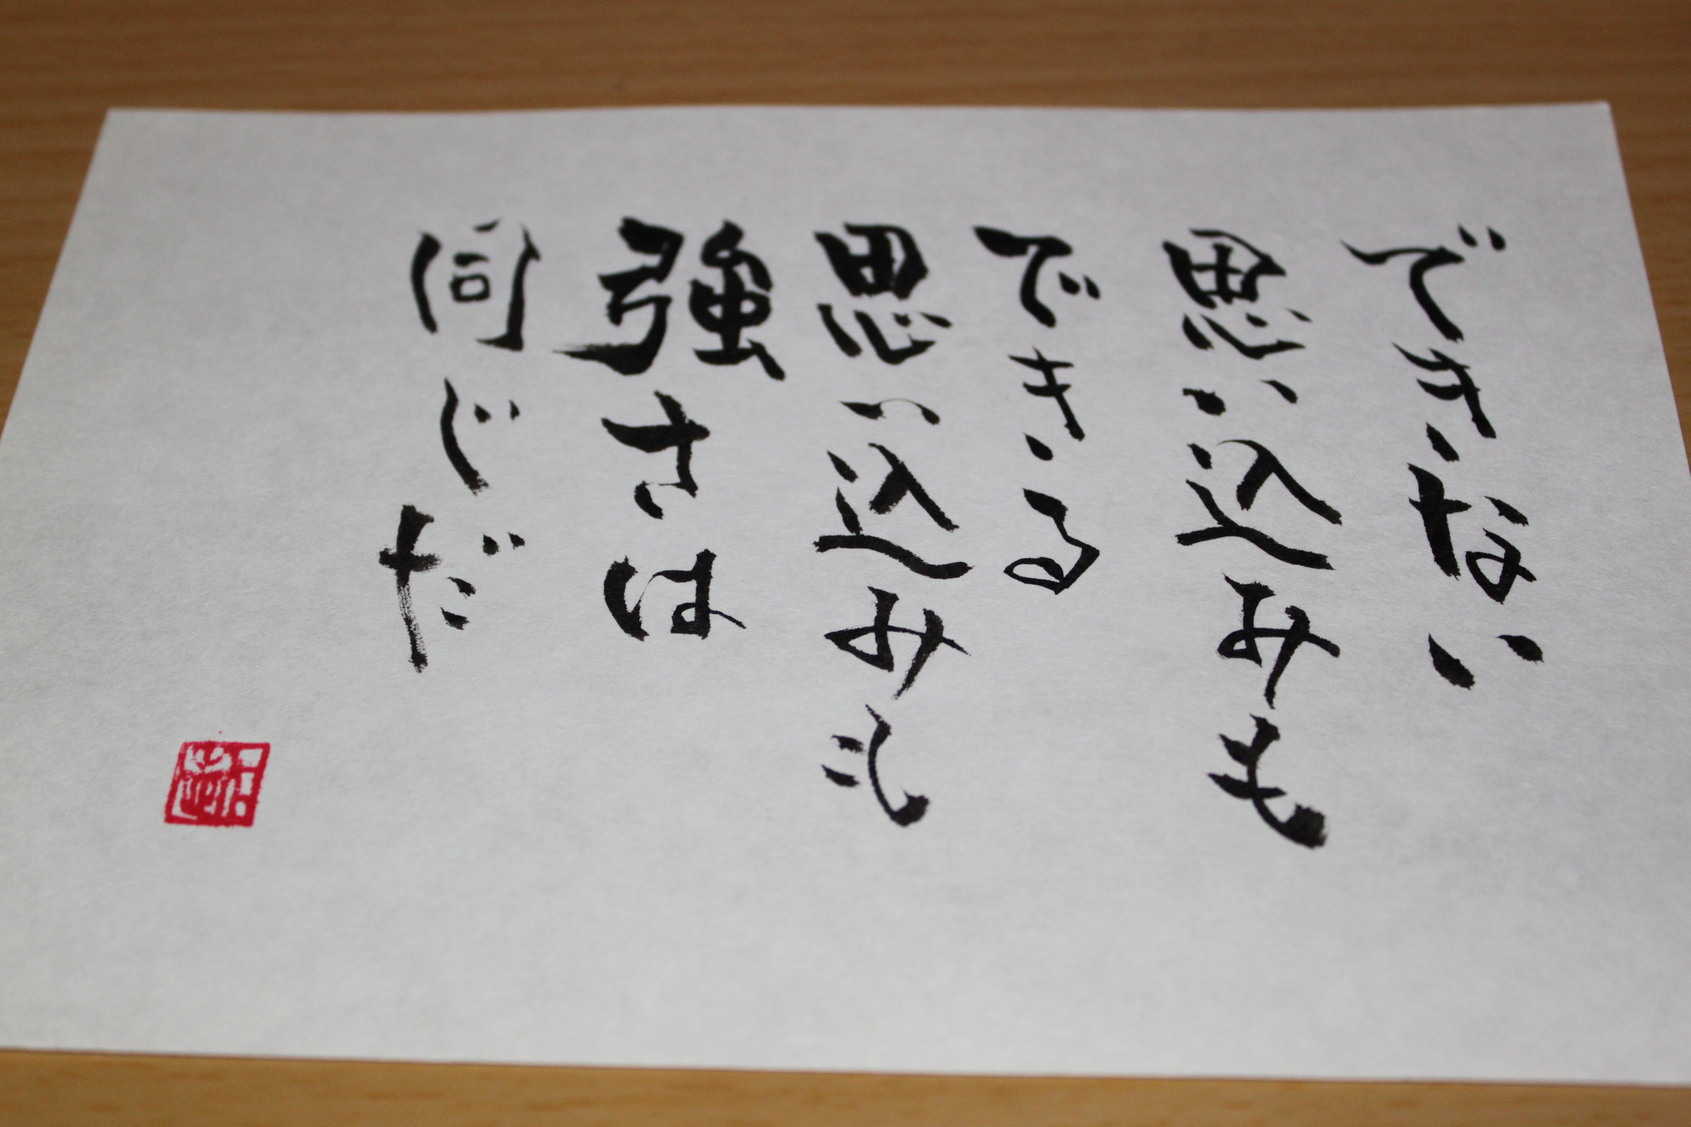 できない
思い込みも
できる
思い込みも
強さは
同じだ